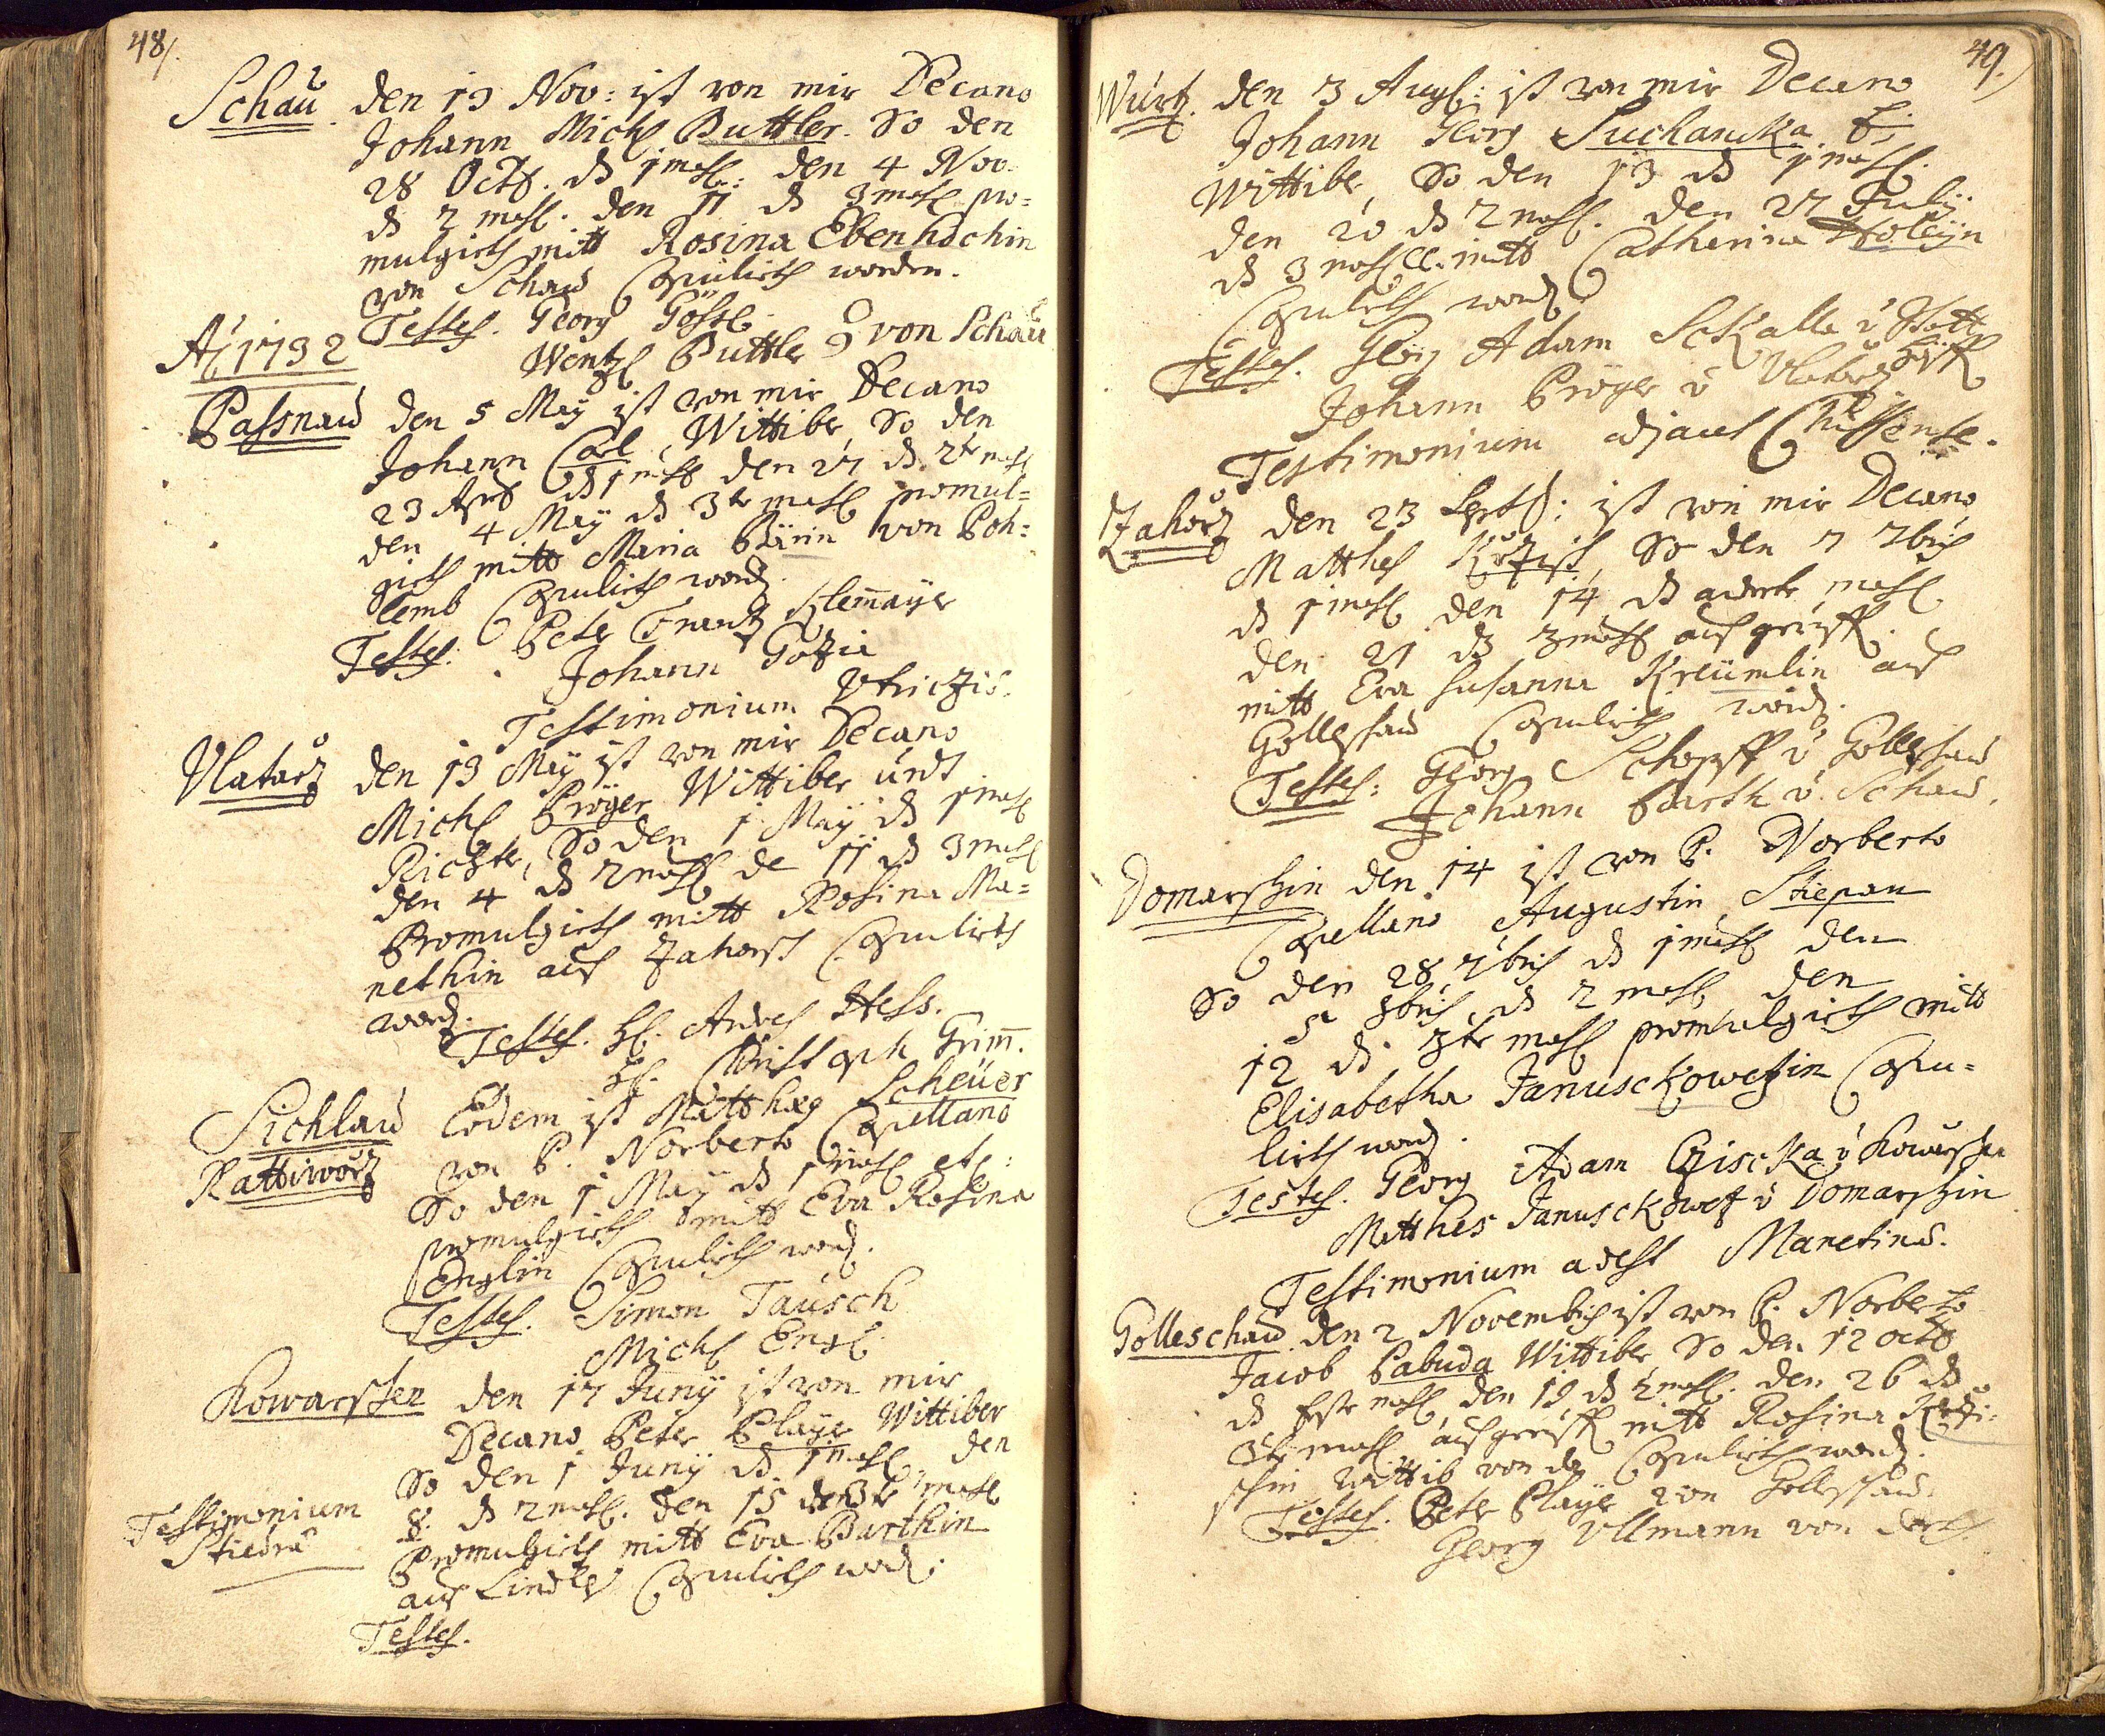 48.
Schaů. den 19 Nov: ist von mir Decano
Johann Michl Buttler. So den
28 Octb. dß 1 mahl: den 4 Nov.
dß 2 mahl. den 11 dß 3 mahl pro=
mulgirth mitt Rosina Ebenhöchin
von Schau Copulirth worden.
Testes. Georg Göstl
Wentzl Buttler von Schau
Aõ 1732
Passnau den 5 May ist von mir Decano
Johann Carl, Wittiber, So den
23 Aprl dß 1 mahl den 27 dß 2te mahl
den 4 May dß 3te mahl promul=
girth mitt Maria von Poh=
lemb Copulirth word.
Testes. Peter Frantz Klemayer
Johann
Testimonium
Vlatarz den 13 May ist von mir Decano
Michl Pröyer Wittiber undt
Richter, So den 1 May dß 1 mahl
den 4 dß 2 mahl de 11 dß 3 mahl
Promulgirth mitt Rosina Ma=
nethin auß Zahorz Copulirth
word.
Testes. H. Andres Hess.
H. Christoph Grim̄.
Sichlau Eodem ist Matthæg Scheüer
Rattiworz von P. Norberto Capellano
So den 1 May dß 1 mahl etc:
promulgirth mitt Eva Rosina
Englin Copulirth word.
Testes. Simon Tausch
Michl Engl
Kowarzen den 17 Juny ist von mir
Decano Peter Player Wittiber
So den 1 Juny dß 1 mahl, den
8. dß 2 mahl. den 15 den 3te mahl
Testimonium
Stiedra
Promulgirth mitt Eva Barthin
auß Copulirth word.
Testes.
49.
Wurz. den 3 Aug: ist von mir Decano
Johann Georg Suchancka
Wittiber, So den 13 dß 1 mahl.
den 20 dß 2 mahl. den 27 July
dß 3 mahl mitt Catherina
Copulirth word
Testes. Georg Adam Skalla v
Johann Pröyer v Vlatarz
Testimonium
Zahorz den 23 Septb: ist von mir Decano
Matthes So den 7 7bris
dß 1 mahl den 14 dß anderte mahl
den 21 dß 3 mahl aufgeruff
mitt Eva Susanna Kreümlin auß
Gollschau Copulirth word.
Testes: Georg Schopff v Gollschau
Johann Barth v. Schau.
Domaschin den 14 ist von P. Norberto
Capellano Augustin Stiepan
So den 28 7bris dß 1 mahl den
5 8bris dß 2 mahl den
12 dß 3te mahl promulgirth mitt
Elisabetha Januschkowezin Copu=
lirth word.
Testes. Georg Adam Cziscka v Kowarzen
Matthes Januschkowez v Domaschin
Testimonium adest Manetina.
Golleschau. den 2 Novembris ist von P. Norberto
Jacob Babuda Wittiber, So den 12 Octb
dß Erste mahl den 19 dß 2 mahl. den 26 dß
3te mahl aufgeruff mitt Rosina
schin Wittib von da Copulirth word.
Testes. Peter Player von Gollschau
Georg Ullmann von